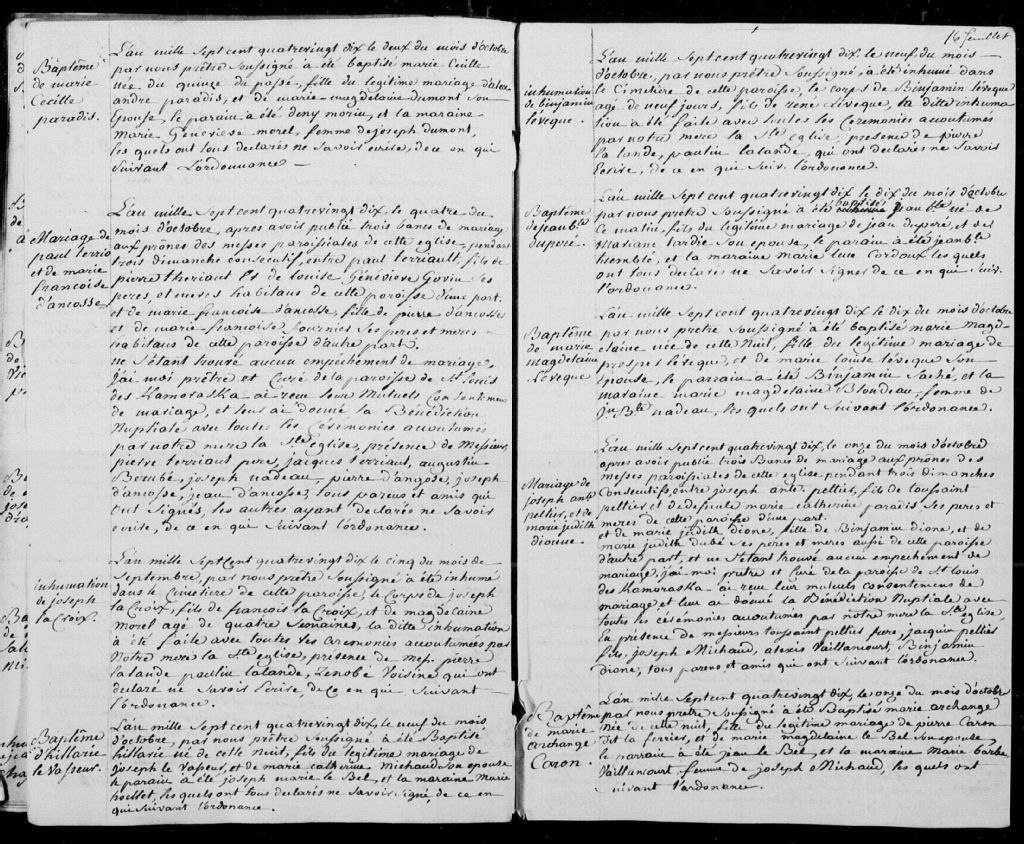 Baptême
de marie
Cecille
paradis.
L'an mille Sept cent quatrevingt dix le deux du mois d'octobre
par nous prêtre Soussigné à été baptisé marie Cecille
née du quinze du passé, fille du legitime mariage d'alex
andre paradis, et de marie magdelaine dumont Son
Epouse, le parain a été deny morin, et la maraine
Marie Geneviève morel, femme de joseph dumont,
les quels ont tous declarés ne Savoir ecrire, de ce en qui
Suivant L'ordonnance —
Mariage de
paul terrio
et de marie
francoise
d'ancosse
L'au mille Sept cent quatrevingt dix, le quatre du
mois d'octobre, apres avoir publié trois bancs de mariage
aux prônes des messes paroissiales de cette eglise, pendant
trois dimanche consecutif, entre paul terriault, fils de
pierre theriaut et de louise Géneviève Govin Ses
peres, et meres habitans de cette paroisse d'une part.
et de marie francoise d'ancosse, fille de pierre d'ancosse
et de marie francoise fournier Ses peres et meres
habitans de cette paroisse d'autre part.
ne S'étant trouvé aucun empêchement de mariage,
j'ai moi prêtre et Curé de la paroisse de St louis
des Kamoraska ai reçu leur Mutuels Consentemens
de mariage, et leur ai donné la Bénédiction
Nuptiale avec toutes les Cérémonies acoutumés
par notre mere la Ste eglise, présence de Messieurs
pierre terriaut pere, jacques terriaut, augustin
Berubé, joseph nadeau, pierre d'angosse, joseph
d'ancosse, jean d'ancosse, tous parens et amis qui
Ont Signés, les autres ayant declarés ne Savoir
ecrire, de ce en qui Suivant l'ordonance.
inhumation
de joseph
la Croix.
L'an mille Sept Cent quatrevingt dix le cinq du mois de
Septembre, par nous prêtre Soussigné a été inhumé
dans le Cimetiere de cette paroisse, le Corps de joseph
la Croix, fils de francois la Croix, et de magdelaine
Morel agé de quatre Semaines, la ditte inhumation
à été faite avec toutes les Ceremonies acoutumées par
Notre mere la Ste eglise, présence de mess. pierre
lalande paulin lalande, Voisine qui ont
declaré ne Savoir Ecrire, de ce en qui Suivant
l'ordonance.
Baptême
d'hillarie
le Vasseur.
L'au mille Sept cent quatrevingt dix, le neuf du mois
d'octobre, par nous prêtre Soussigné à été Baptisé
hillarie né de cette nuit, fils du legitime mariage de
joseph le Vasseur, et de marie catherine michaud Son epouse
le parain a été joseph marie le Bel, et la maraine Marie
les quels ont tous declarés ne Savoir Signé, de ce en
qui Suivant l'ordonance.
16 feuillet
inhumation
de binjamin
lévèque.
L'au mille Sept cent quatrevingt dix. le neuf du mois
d'octobre, par nous prêtre Soussigné, a été inhumé dans
le Cimetiere de cette paroisse, le corps de Binjamin lévêque
agé de neuf jours, fils de rené Lévêque, la ditte inhuma
tion à été faite avec toutes les Ceremonies acoutumées
par notre mere la Ste eglise, présence de pierre
la lande, paulin lalande, qui ont declarés ne Savoir
Ecrire, de ce en qui Suiv. l'ordonance.
Baptême
de jean bte
duperé.
L'au mille Sept cent quatrevingt dix le dix du mois d'octobre
par nous prêtre Soussigné a été baptisé jean bte né de
Ce matin, fils du légitime mariage de jean duperé, et de
Mariane tardie Son epouse, le parain a été jean bte
tremblé, et la maraine Marie luce Cordoux les quels
ont tous declarés ne Savoir Signer de ce en qui Suiv.
l'ordonance.
Baptême
de marie
magdelaine
Lévêque
L'au mille Sept cent quatrevingt dix le dix du mois d'octobre
par nous prêtre Soussigné à été baptisé marie magd-
elaine née de cette Nuit, fille du légitime mariage de
prosper levêque, et de marie louise levêque Son
épouse, le parrain a été Binjamin Saché, et la
maraine marie magdelaine Blondeau, femme de
jn Bte nadeau, les quels ont Suivant l'ordonance.
Mariage de
joseph ante
peltier, et de
marie judith
dionne.
L'au mille Sept cent quatrevingt dix, le onze du mois d'octobre
apres avoir publié trois Bancs de mariage aux prônes des
messes paroissiales de cette eglise pendant trois dimanches
Consécutifs, entre joseph ante. peltier, fils de toussaint
peltier et de defeinte marie catherine paradis Ses peres et
meres de cette paroisse d'une part.
et de marie judith dione, fille de Binjamin dione, et de
marie judith dubé Ses peres et meres aussi de cette paroisse
d'autre part, et ne S'étant trouvé aucun empechement de
mariage, j'ai moi prêtre et Curé de la paroisse de St louis
des Kamoraska ai reçu leur mutuels consentemens de
mariage et leur ai donné la Bénédiction Nuptiale avec
toutes les cérémonies acoutumées par notre mere la Ste eglise,
En présence de messieurs toussaint peltier pere, jacquin peltier
fils, joseph Michaud, alexis Vaillancourt, Binjamin
dione, tous parens et amis qui ont Suivant l'ordonance.
Baptême
de marie
archange
Caron.
L'an mille Sept cent quatrevingt dix, le onze du mois d'octobre
par nous prêtre Soussigné à été Baptisé marie archange
Née de cette nuit, fille du legitime mariage de pierre Caron
dit la ferrier, et de marie magdelaine le Bel Son epouse
le parrain a été jean le Bel, et la maraine Marie barbe
Vaillancourt, femme de joseph Michaud, les quels ont
Suivant l'ordonance.